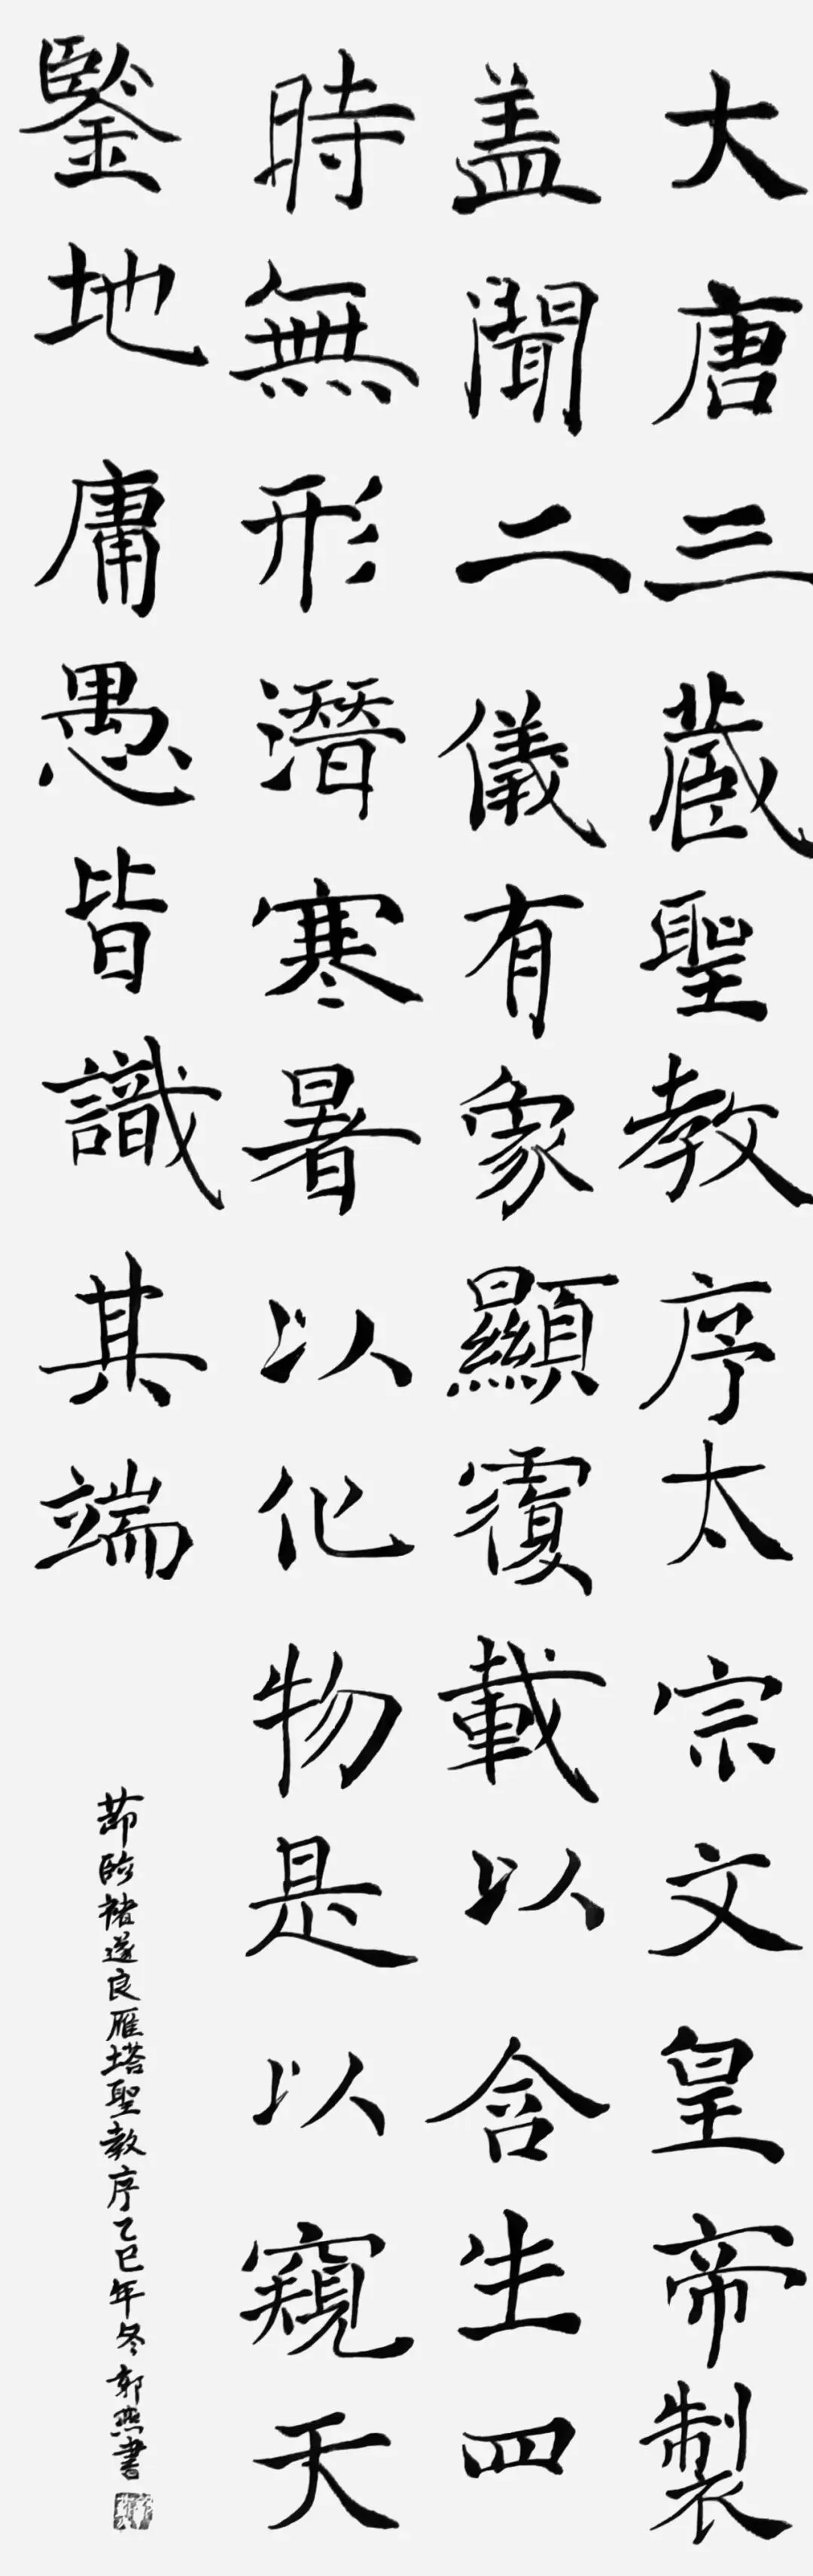 大唐三蔵聖教序太宗文皇帝製
盖聞二儀有象顯覆載以含生四
時無形潛寒暑以化物是以窺天
鑒地庸愚皆識其端
節臨褚遂良雁塔聖教序乙巳年冬郭燕書